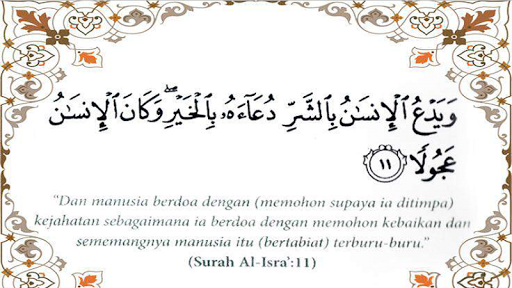 وَيَدْعُ ٱلْإِنسَـٰنُ بِٱلشَّرِّ دُعَآءَهُۥ بِٱلْخَيْرِ ۖ وَكَانَ ٱلْإِنسَـٰنُ
عَجُولًا ١١
"Dan manusia berdoa dengan (memohon supaya ia ditimpa)
kejahatan sebagaimana ia berdoa dengan memohon kebaikan dan
sememangnya manusia itu (bertabiat) terburu-buru."
(Surah Al-Isra':11)